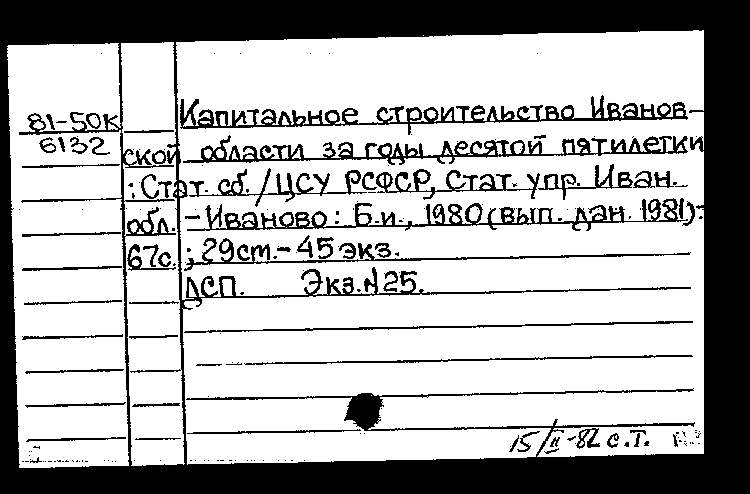 81-50К Капитальное строительство Иванов-
6132 ской области за годы десятой пятилетки
: Стат. сб. / ЦСУ РСФСР, Стат. упр. Иван.
обл. - Иваново: Б.и., 1980 (вып. дан. 1981).-
67с.; 29cm. - 45 экз.
ДСП. Экз. №25.
15/II-82 с.Т.